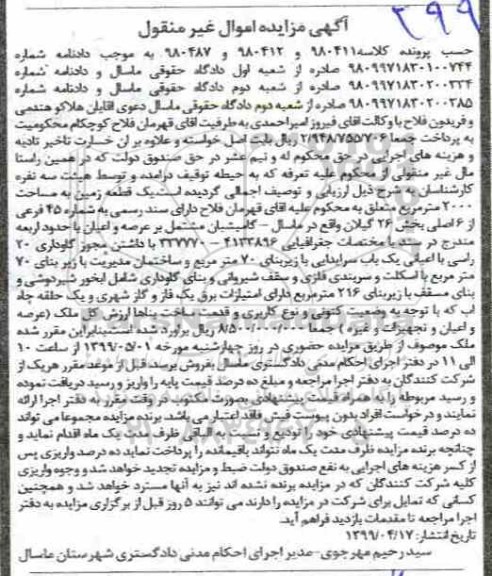 ۳۹۹
آگهی مزایده اموال غیر منقول
حسب پرونده کلاسه۹۸۰۴۱۱ و ۹۸۰۴۱۲ و ۹۸۰۴۸۷ به موجب دادنامه شماره
۹۸۰۹۹۷۱۸۳۰۱۰۰۷۴۴ صادره از شعبه اول دادگاه حقوقی ماسال و دادنامه شماره
۹۸۰۹۹۷۱۸۳۰۲۰۰۳۳۴ صادره از شعبه دوم دادگاه حقوقی ماسال و دادنامه شماره
۹۸۰۹۹۷۱۸۳۰۲۰۰۳۸۵ صادره از شعبه دوم دادگاه حقوقی ماسال دعوی اقایان هلاکو هندمی
و فریدون فلاح با وکالت اقای فیروز امیراحمدی به طرفیت اقای قهرمان فلاح کوچکام محکومیت
به پرداخت جمعا ۲/۹۴۸/۷۵۵/۷۰۶ ریال بابت اصل خواسته و علاوه بر ان خسارت تاخیر تادیه
و هزینه های اجرایی در حق محکوم له و نیم عشر در حق صندوق دولت که در همین راستا
مال غیر منقولی از محکوم علیه تعرفه که به حیطه توقیف درآمده و توسط هیئت سه نفره
کارشناسان به شرح ذیل ارزیابی و توصیف اجمالی گردیده است یک قطعه زمین به مساحت
۲۰۰۰ مترمربع متعلق به محکوم علیه اقای قهرمان فلاح دارای سند رسمی به شماره ۴۵ فرعی
از ۶ اصلی بخش ۲۶ گیلان واقع در ماسال – کامیشبان مشتمل بر عرصه و اعیان با حدود اربعه
مندرج در سند با مختصات جغرافیایی ۴۱۳۳۸۹۶ – ۳۳۷۷۷۰ با داشتن مجوز گاوداری ۲۰
راسی با اعیانی یک باب سرایداری با زیربنای ۷۰ متر مربع و ساختمان مدیریت با زیر بنای ۷۰
متر مربع با اسکلت و سربندی فلزی و سقف شیروانی وبنای گاوداری شامل ابخور شیردوشی و
بنای مسقف با زیربنای ۲۱۶ مترمربع دارای امتیازات برق یک فاز و گاز شهری و یک حلقه چاه
اب که با توجه به وضعیت کنونی و نوع کاربری و قدمت ساخت بناها ارزش کل ملک (عرصه
و اعیان و تجهیزات و غیره ) جمعا ۸/۵۰۰/۰۰۰/۰۰۰ ریال برآورد شده است بنابراین مقرر شده
ملک موصوف از طریق مزایده حضوری در روز چهارشنبه مورخه ۱۳۹۹/۰۵/۰۱ از ساعت ۱۰
الی ۱۱ در دفتر اجرای احکام مدنی دادگستری ماسال بفروش برسد، قبل از موعد مقرر هریک از
شرکت کنندگان به دفتر اجرا مراجعه و مبلغ ده درصد قیمت پایه را واریز و رسید دریافت نموده
و رسید مربوطه را به همراه قیمت پیشنهادی بصورت مکتوب در وقت مقرر به دفتر اجرا ارائه
نمایند و درخواست افراد بدون پیوست فیش فاقد اعتبار می باشد. برنده مزایده مجموعا می تواند
ده درصد قیمت پیشنهادی خود را تودیع و نسبت به الباقی ظرف مدت یک ماه اقدام نماید و
چنانچه برنده مزایده ظرف مدت یک ماه نتواند باقیمانده را پرداخت نماید ده درصد واریزی پس
از کسر هزینه های اجرایی به نفع صندوق دولت ضبط و مزایده تجدید خواهد شد و وجوه واریزی
کلیه شرکت کنندگان که در مزایده برنده نشده اند نیز به آنها مسترد خواهد شد و همچنین
کسانی که تمایل برای شرکت در مزایده را دارند می توانند ۵ روز قبل از برگزاری مزایده به دفتر
اجرا مراجعه تا مقدمات بازدید فراهم آید.
تاریخ انتشار: ۱۳۹۹/۰۴/۱۷
سید رحیم مهرجوی-مدیر اجرای احکام مدنی دادگستری شهرستان ماسال